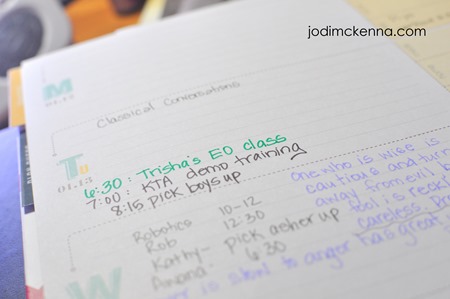 jodimckenna.com
M
01.12
Classical Conversations
Tu
01.13
6:30 : Trisha's EO class
7:00 : KTA demo training
8:15 pick boys up
W
Robotics 10-12
Rob 12:30
Kathy- pick asher up
Awana: 6:30
One who is wise is
cautious and turns
away from evil, b
fool is reckl
careless. Pro
er is slow to anger has great